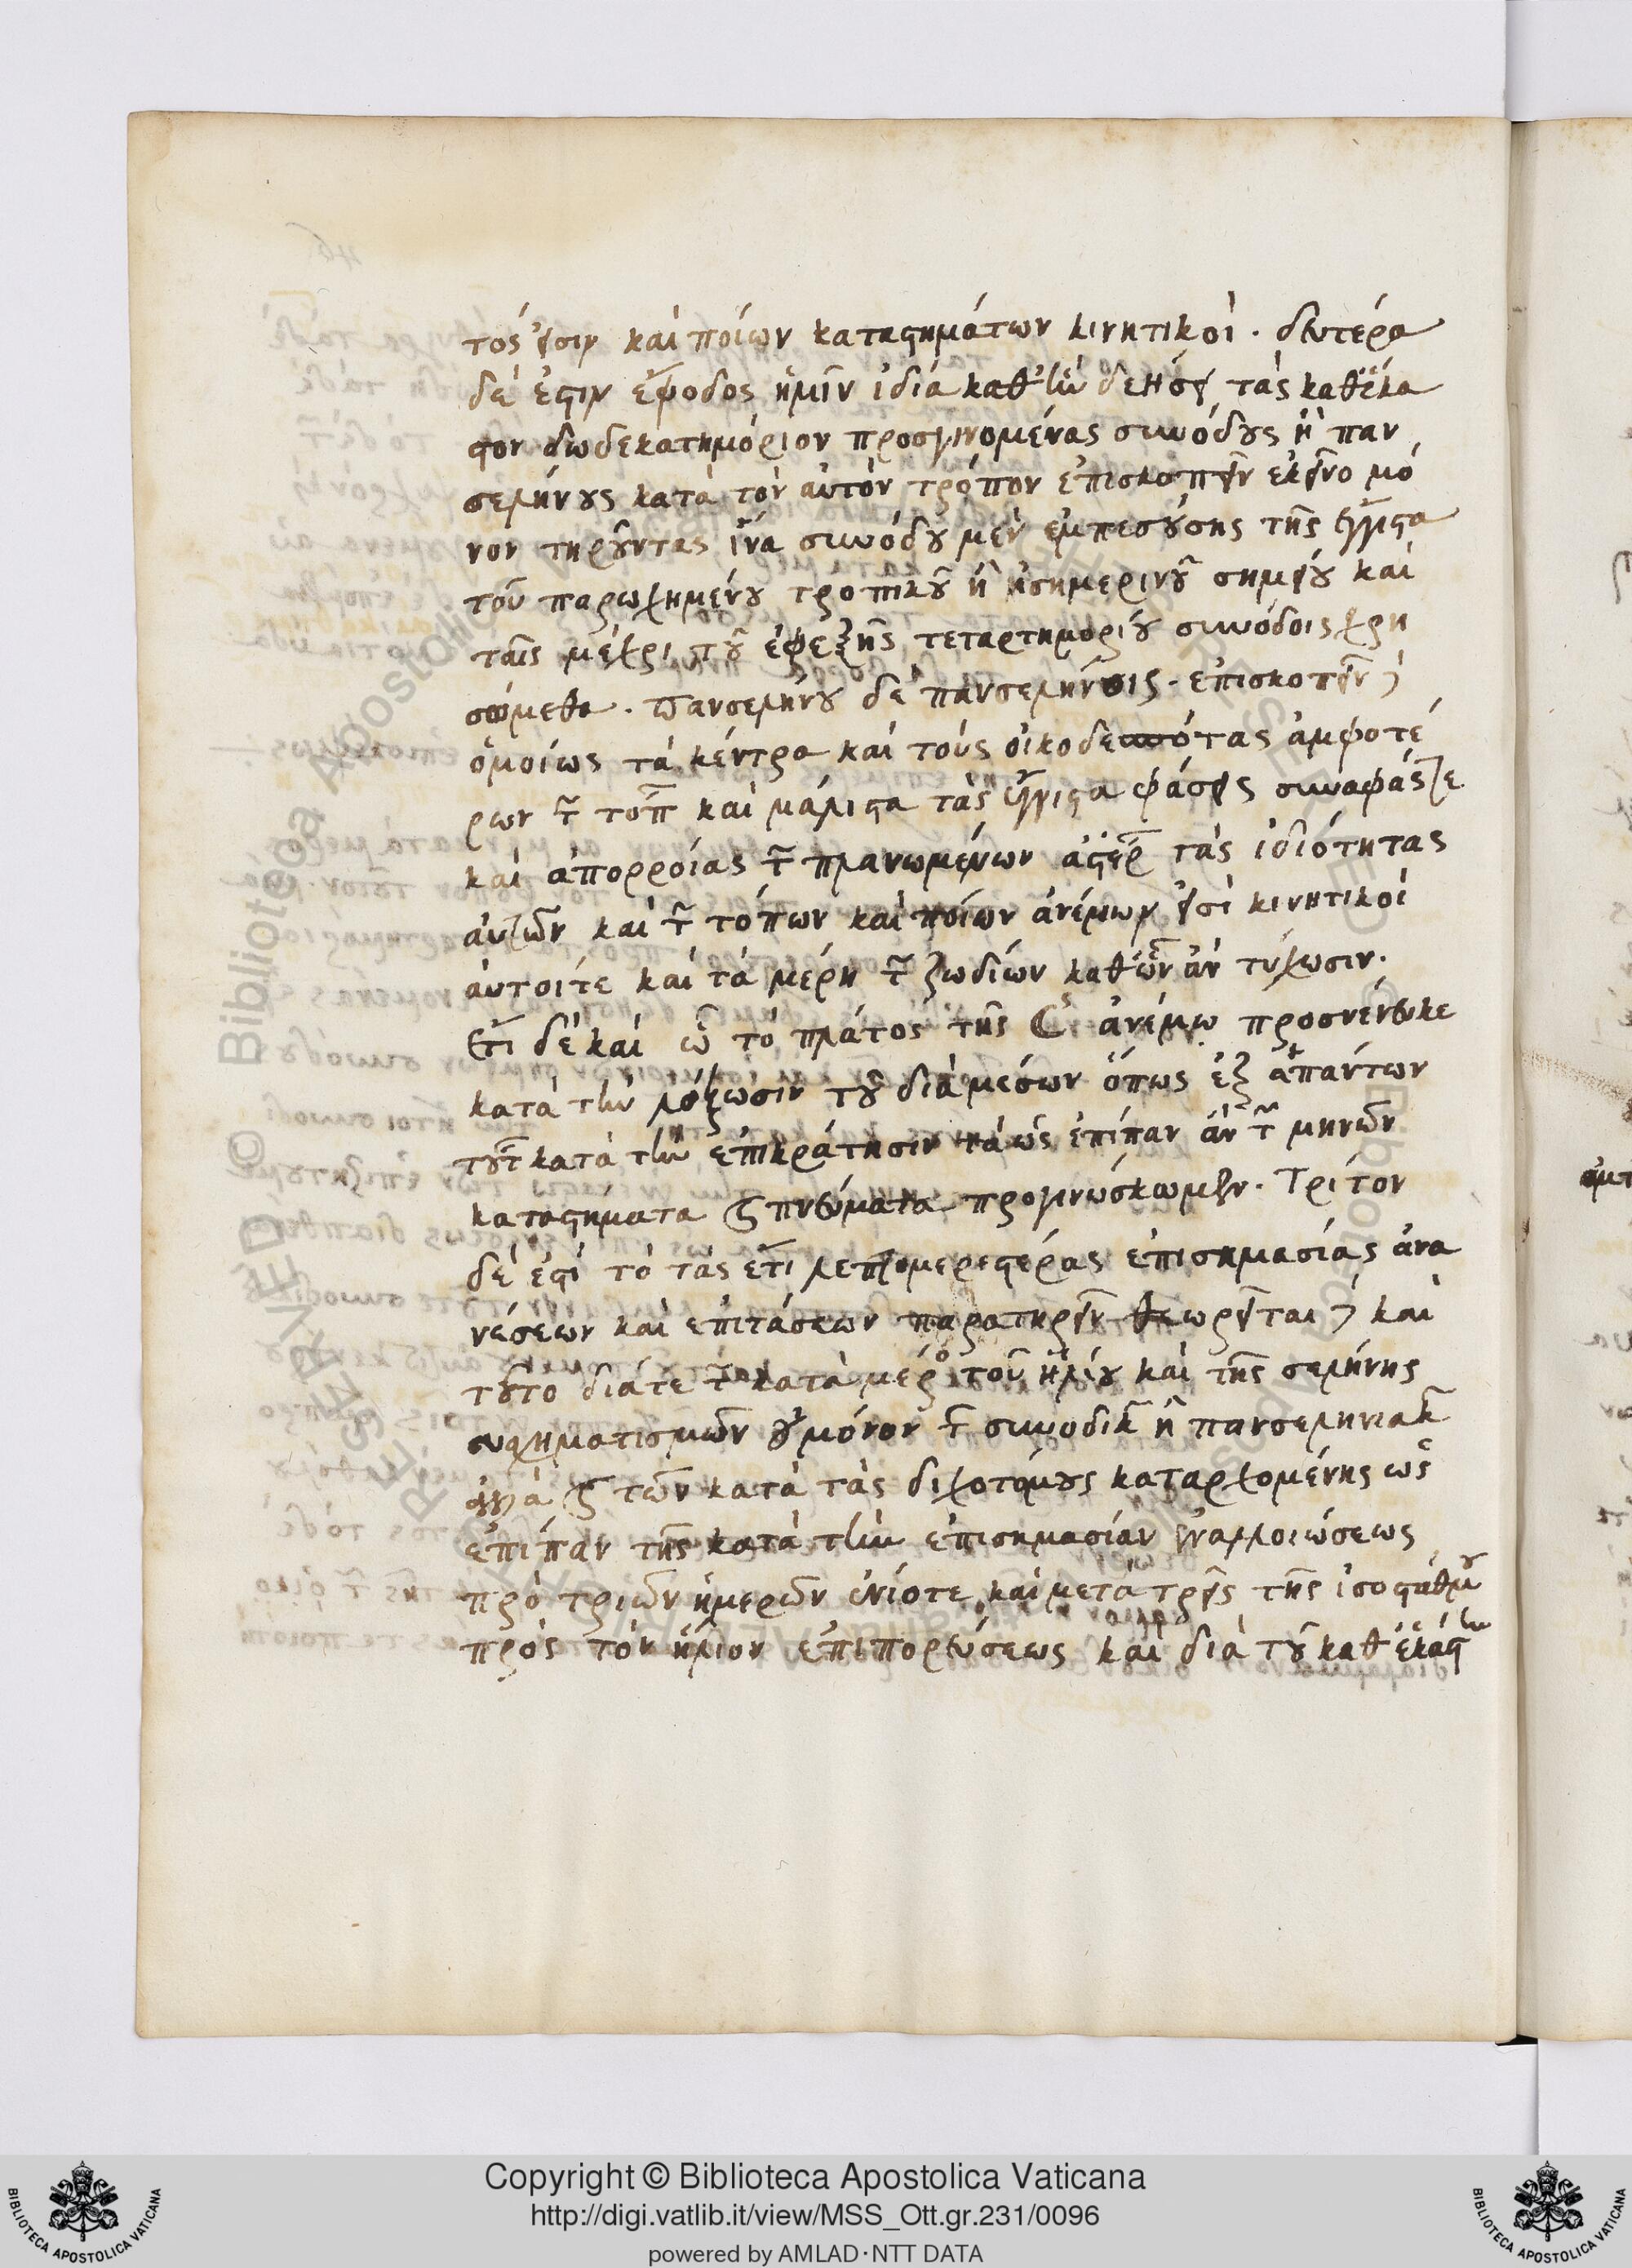 τός εἰσιν καὶ ποίων καταστημάτων κινητικοί. δευτέρα
δέ ἐστιν ἔφοδος ἡμῖν ἰδία καθ' ἣν δεήσει τὰς καθ' ἕκα
στον δωδεκατημόριον προσγινομένας συνόδους ἢ παν
σελήνους κατὰ τὸν αὐτὸν τρόπον ἐπισκοπεῖν ἐκεῖνο μό
νον τηροῦντας ἵνα συνόδου μὲν ἐμπεσούσης τῆς ἔγγιστα
τοῦ παρῳχημένου τροπικοῦ ἢ ἰσημερινοῦ σημείου καὶ
ταῖς μέχρι τοῦ ἐφεξῆς τεταρτημορίου συνόδοις χρη
σώμεθα. πανσελήνου δὲ πανσελήνοις. ἐπισκοπεῖν
ὁμοίως τὰ κέντρα καὶ τοὺς οἰκοδεσπότας ἀμφοτέ
ρων τῶν τόπων καὶ μάλιστα τὰς ἔγγιστα φάσεις συναφάς τε
καὶ ἀπορροίας τῶν πλανωμένων ἀστέρων τὰς ἰδιότητας
αὐτῶν καὶ τῶν τόπων καὶ ποίων ἀνέμων εἰσὶ κινητικοὶ
αὐτοί τε καὶ τὰ μέρη τῶν ζωδίων καθ' ὧν ἂν τύχωσιν.
ἔτι δὲ καὶ ᾧ τὸ πλάτος τῆς ☾ ἀνέμῳ προσνένευκε
κατὰ τὴν λόξωσιν τοῦ διὰ μέσων ὅπως ἐξ ἁπάντων
τούτων κατὰ τὴν ἐπικράτησιν τὰ ὡς ἐπίπαν ἂν τῶν μηνῶν
καταστήματα καὶ πνεύματα προγινώσκωμεν. Τρίτον
δέ ἐστὶ τὸ τὰς ἔτι λεπτομερεστέρας ἐπισημασίας ἀνα
νέσεων καὶ ἐπιτάσεων παρατηρεῖν θεωρεῖται καὶ
τοῦτο διά τε τῶν κατὰ μέρος τοῦ ἡλίου καὶ τῆς σελήνης
συσχηματισμῶν οὐ μόνον τῶν συνοδικῶν ἢ πανσεληνιακῶν
ἀλλὰ καὶ τῶν κατὰ τὰς διχοτόμους καταρχομένης ὡς
ἐπίπαν τῆς κατὰ τὴν ἐπισημασίαν ἐναλλοιώσεως
πρὸ τριῶν ἡμερῶν ἐνίοτε καὶ μετὰ τρεῖς τῆς ἰσοστάθμου
πρὸς τὸν ἥλιον ἐπιπορεύσεως καὶ διὰ τοῦ καθ' ἑκάστην
Copyright © Biblioteca Apostolica Vaticana
http://digi.vatlib.it/view/MSS_Ott.gr.231/0096
powered by AMLAD·NTT DATA